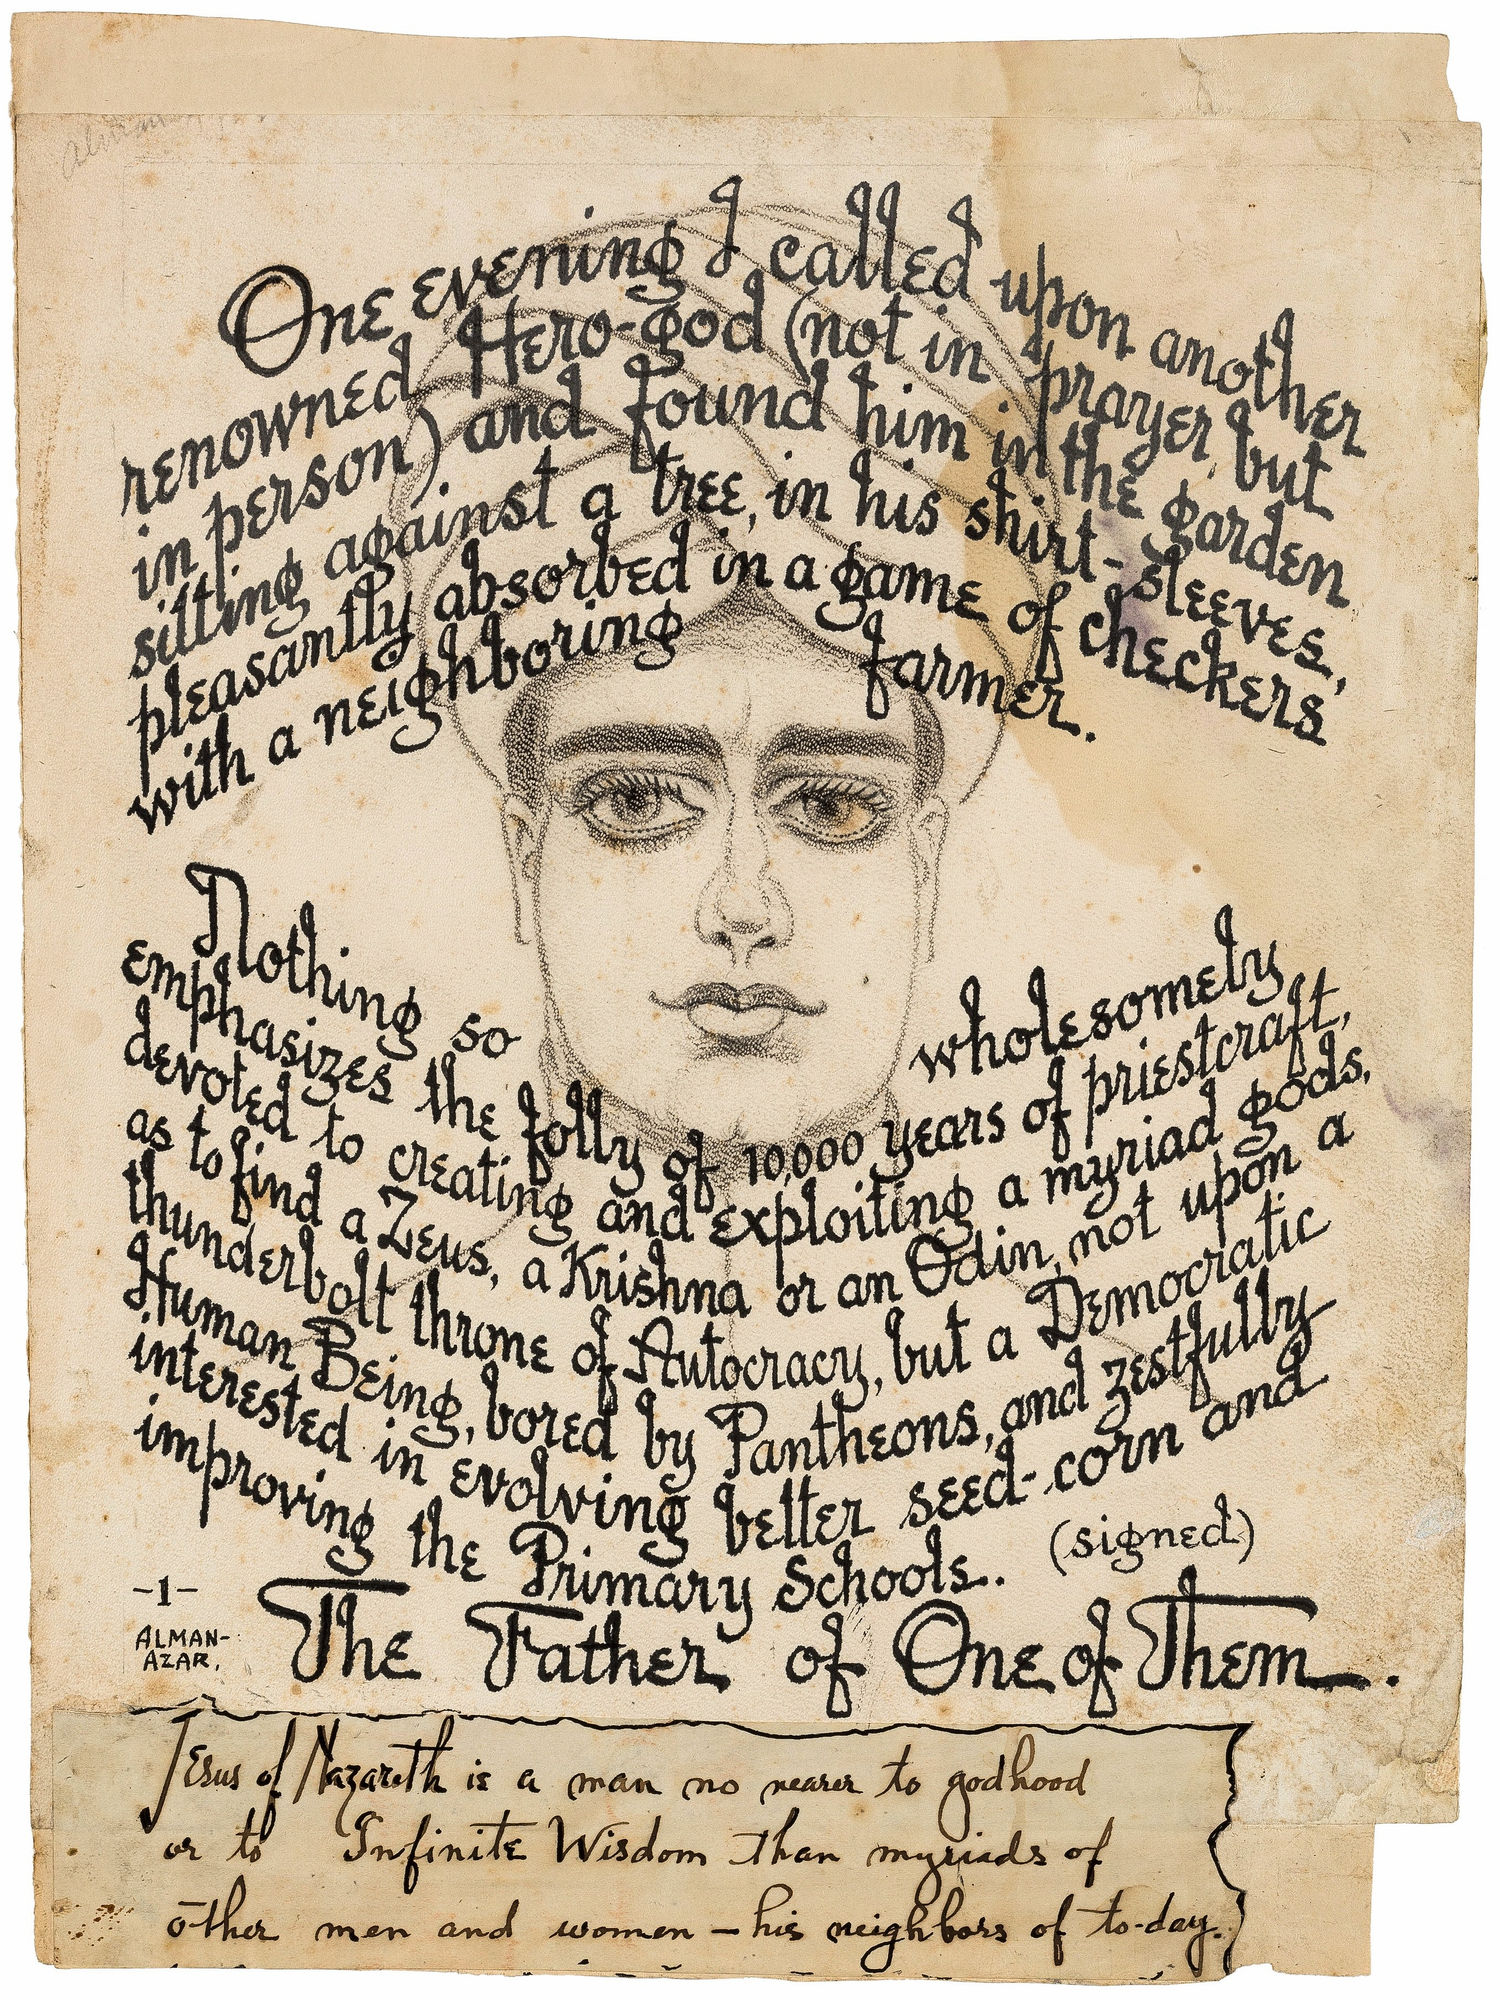 One evening I called upon another
renowned Hero-god (not in prayer, but
in person) and found him in the garden
sitting against a tree, in his shirt-sleeves,
pleasantly absorbed in a game of checkers
with a neighboring farmer.
Nothing so wholesomely
emphasizes the folly of 10,000 years of priestcraft,
devoted to creating and exploiting a myriad gods,
as to find a Zeus, a Krishna or an Odin, not upon a
thunderbolt throne of Autocracy, but a Democratic
Human Being, bored by Pantheons, and zestfully
interested in evolving better seed-corn and
improving the Primary Schools.. (signed)
-1-
ALMAN-
AZAR.
The Father of One of Them.
Jesus of Nazareth is a man no nearer to godhood
or to Infinite Wisdom than myriads of
other men and women - his neighbors of to-day.